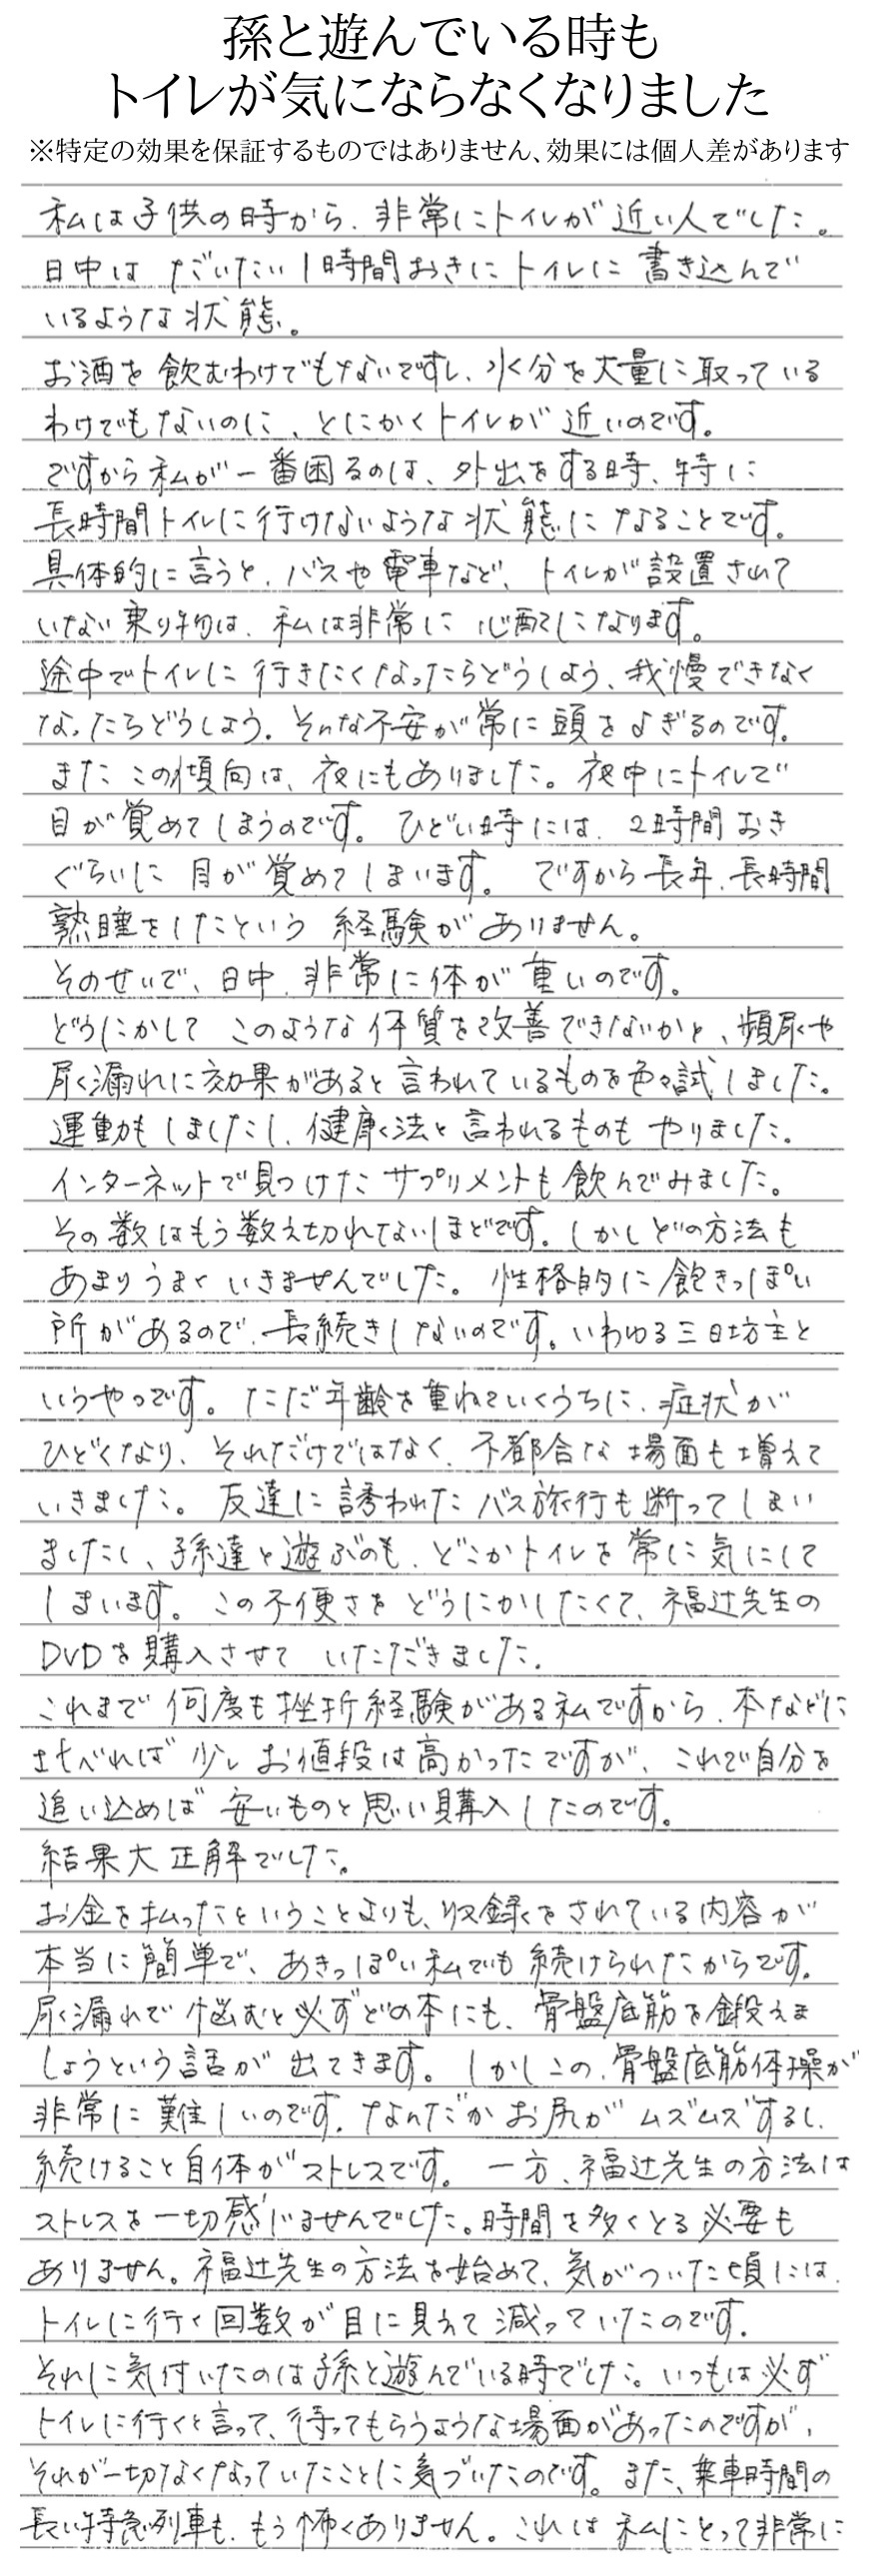 孫と遊んでいる時も
トイレが気にならなくなりました
※特定の効果を保証するものではありません、効果には個人差があります
私は子供の時から、非常にトイレが近い人でした。
日中はだいたい1時間おきにトイレに書き込んで
いるような状態。
お酒を飲むわけでもないですし、水分を大量に取っている
わけでもないのに、とにかくトイレが近いのです。
ですから私が一番困るのは、外出をする時、特に
長時間トイレに行けないような状態になることです。
具体的に言うと、バスや電車など、トイレが設置されて
いない乗り物は、私は非常に心配になります。
途中でトイレに行きたくなったらどうしよう、我慢できなく
なったらどうしよう。そんな不安が常に頭をよぎるのです。
またこの傾向は、夜にもありました。夜中にトイレで
目が覚めてしまうのです。ひどい時には、2時間おき
ぐらいに目が覚めてしまいます。ですから長年、長時間
熟睡をしたという経験がありません。
そのせいで、日中、非常に体が重いのです。
どうにかしてこのような体質を改善できないかと、頻尿や
尿漏れに効果があると言われているものを色々試しました。
運動もしましたし、健康法と言われるものもやりました。
インターネットで見つけたサプリメントも飲んでみました。
その数はもう数え切れないほどです。しかしどの方法も
あまりうまくいきませんでした。性格的に飽きっぽい
所があるので、長続きしないのです。いわゆる三日坊主と
いうやつです。ただ年齢を重ねていくうちに、症状が
ひどくなり、それだけではなく、不都合な場面も増えて
いきました。友達に誘われたバス旅行も断ってしまい
ましたし、孫達と遊ぶのも、どこかトイレを常に気にして
しまいます。この不便さをどうにかしたくて、福辻先生の
DVDを購入させていただきました。
これまで何度も挫折経験がある私ですから、本などに
比べれば少しお値段は高かったですが、これで自分を
追い込めば安いものと思い購入したのです。
結果大正解でした。
お金を払ったということよりも、収録をされている内容が
本当に簡単で、あきっぽい私でも続けられたからです。
尿漏れで悩むと必ずどの本にも、骨盤底筋を鍛えま
しょうという話が出てきます。しかしこの、骨盤底筋体操が
非常に難しいのです。なんだかお尻がムズムズするし、
続けること自体がストレスです。一方、福辻先生の方法は
ストレスを一切感じませんでした。時間を多くとる必要も
ありません。福辻先生の方法を始めて、気がついた頃には、
トイレに行く回数が目に見えて減っていたのです。
それに気付いたのは孫と遊んでいる時でした。いつもは必ず
トイレに行くと言って、待ってもらうような場面があったのですが、
それが一切なくなっていたことに気づいたのです。また、乗車時間の
長い特急列車も、もう怖くありません。これは私にとって非常に